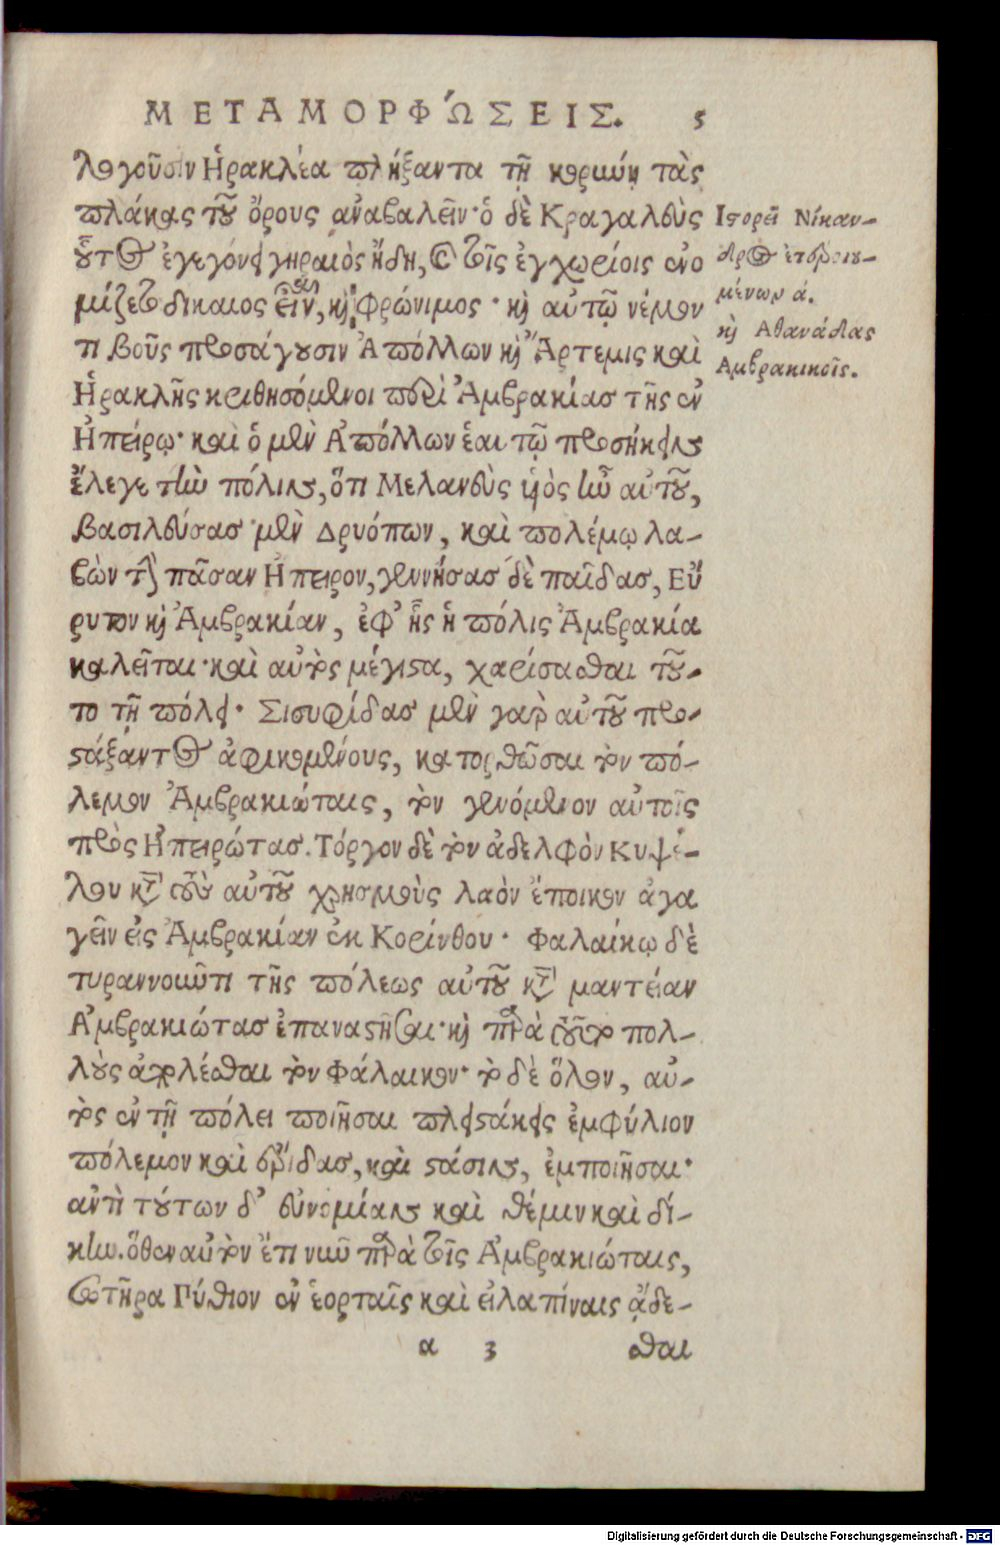 ΜΕΤΑΜΟΡΦΏΣΕΙΣ. 5
λογοῦσιν Ἡρακλέα πλήξαντα τῇ κορύνῃ τὰς
πλάκας τοῦ ὄρους ἀναβαλεῖν· ὁ δὲ Κραγαλεὺς
οὗτος ἐγεγόνει γηραιὸς ἤδη, καὶ τοῖς ἐγχωρίοις ἐνο
μίζετο δίκαιος εἶναι, καὶ φρόνιμος· καὶ αὐτῷ νέμον
τι βοῦς προσάγουσιν Ἀπόλλων καὶ Ἄρτεμις καὶ
Ἡρακλῆς κριθησόμενοι περὶ Ἀμβρακίας τῆς ἐν
Ἠπείρῳ· καὶ ὁ μὲν Ἀπόλλων ἑαυτῷ προσήκειν
ἔλεγε τὴν πόλιν, ὅτι Μελανεὺς υἱὸς ἦν αὐτοῦ,
βασιλεύσας μὲν Δρυόπων, καὶ πολέμῳ λα-
βὼν τὴν πᾶσαν Ἤπειρον, γεννήσας δὲ παῖδας, Εὔ
ρυτον καὶ Ἀμβρακίαν, ἐφ’ ἧς ἡ πόλις Ἀμβρακία
καλεῖται· καὶ αὐτὸς μέγιστα, χαρίσασθαι τοῦ-
το τῇ πόλει· Σισυφίδας μὲν γὰρ αὐτοῦ προ-
στάξαντος ἀφικομένους, κατορθῶσαι τὸν πό-
λεμον Ἀμβρακιώταις, τὸν γενόμενον αὐτοῖς
πρὸς Ἠπειρώτας. Τόργον δὲ τὸν ἀδελφὸν Κυψέ-
λου κατὰ τοὺς αὐτοῦ χρησμοὺς λαὸν ἔποικον ἀγα
γεῖν εἰς Ἀμβρακίαν ἐκ Κορίνθου· Φαλαίκῳ δὲ
τυραννοῦντι τῆς πόλεως αὐτοῦ κατὰ μαντείαν
Ἀμβρακιώτας ἐπαναστῆσαι· καὶ παρὰ τοῦτο πολ-
λοὺς ἀπολέσθαι τὸν Φάλαικον· τὸ δὲ ὅλον, αὐ-
τὸς ἐν τῇ πόλει ποιῆσαι πλειστάκις ἐμφύλιον
πόλεμον καὶ ἔριδας, καὶ στάσιν, ἐμποιῆσαι·
ἀντὶ τούτων δ’ εὐνομίαν καὶ θέμιν καὶ δί-
κην. ὅθεν αὐτὸν ἔτι νῦν παρὰ τοῖς Ἀμβρακιώταις,
σωτῆρα Πύθιον ἐν ἑορταῖς καὶ εἰλαπίναις ᾄδε-
α 3 σθαι
Ἱστορεῖ Νίκαν-
δρος ἑτεροιου-
μένων ά.
καὶ Ἀθανάδας
Ἀμβρακικοῖς.
Digitalisierung gefördert durch die Deutsche Forschungsgemeinschaft - DFG